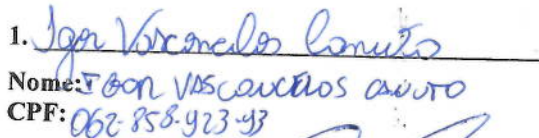 1. Igor Vasconcelos Canuto
Nome: IGOR VASCONCELOS CANUTO
CPF: 062-858-923-93